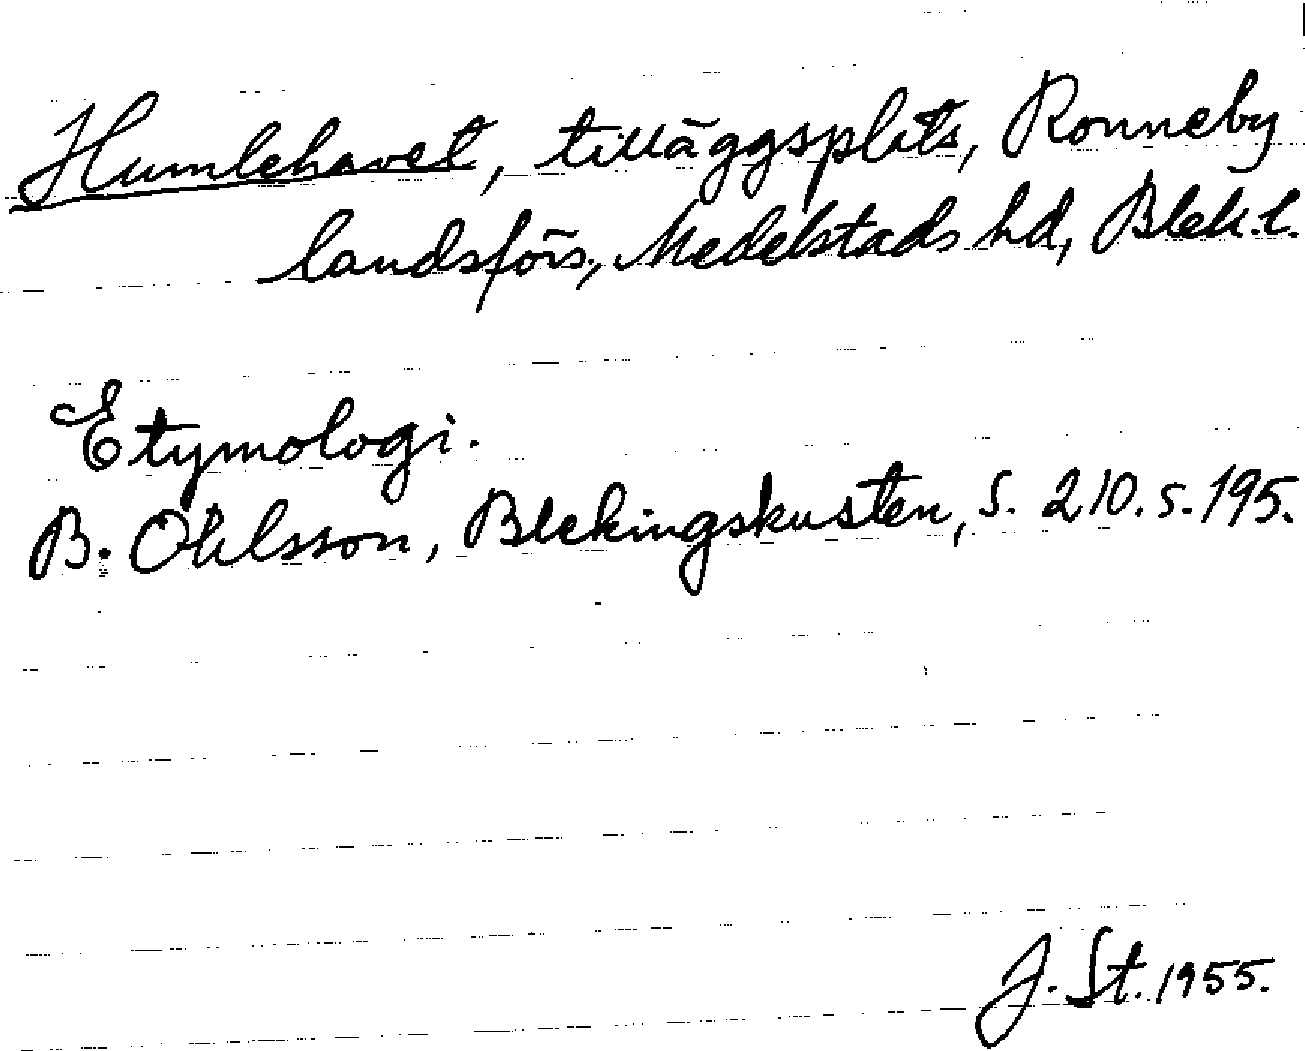 Humlehavet, tilläggsplats, Ronneby
landsförs, Medelstads hd, Blek. l.
Etymologi.
B. Ohlsson, Blekingskusten, s. 210. s. 195.
J. St. 1955.